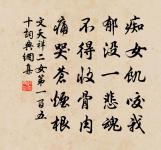 痴女飢咬我
郁没一悲魂
不得收骨肉
痛哭蒼煙根
文天祥二女第一百五
十詞典網集